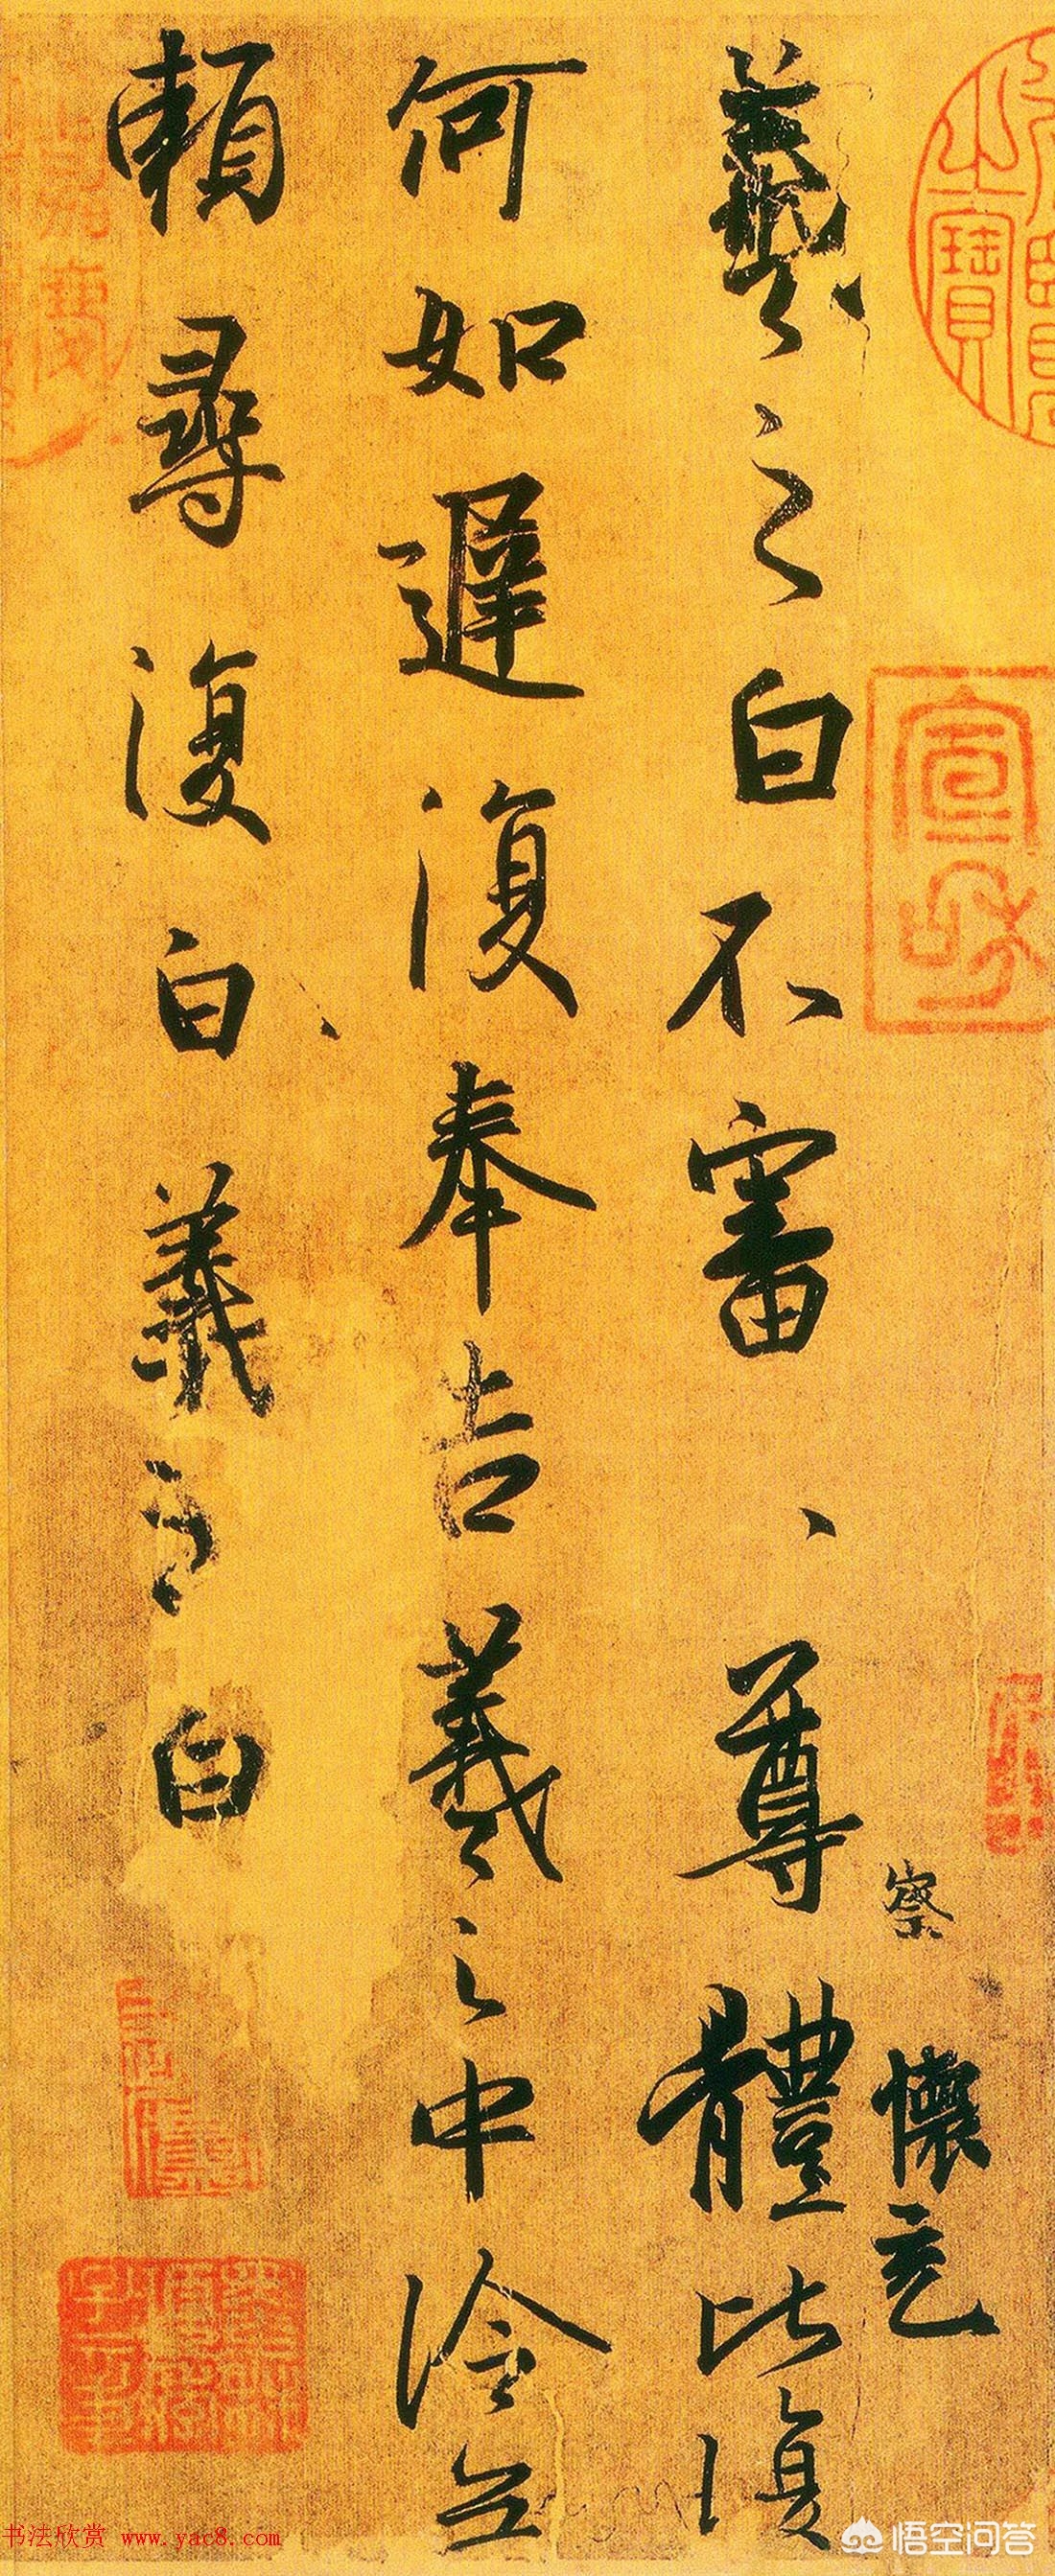 羲之白不審、尊體比復
察
懷充
何如遲復奉告羲之中冷無
賴尋復白羲之白
宣和
書法欣赏 www.yac8.com
悟空问答